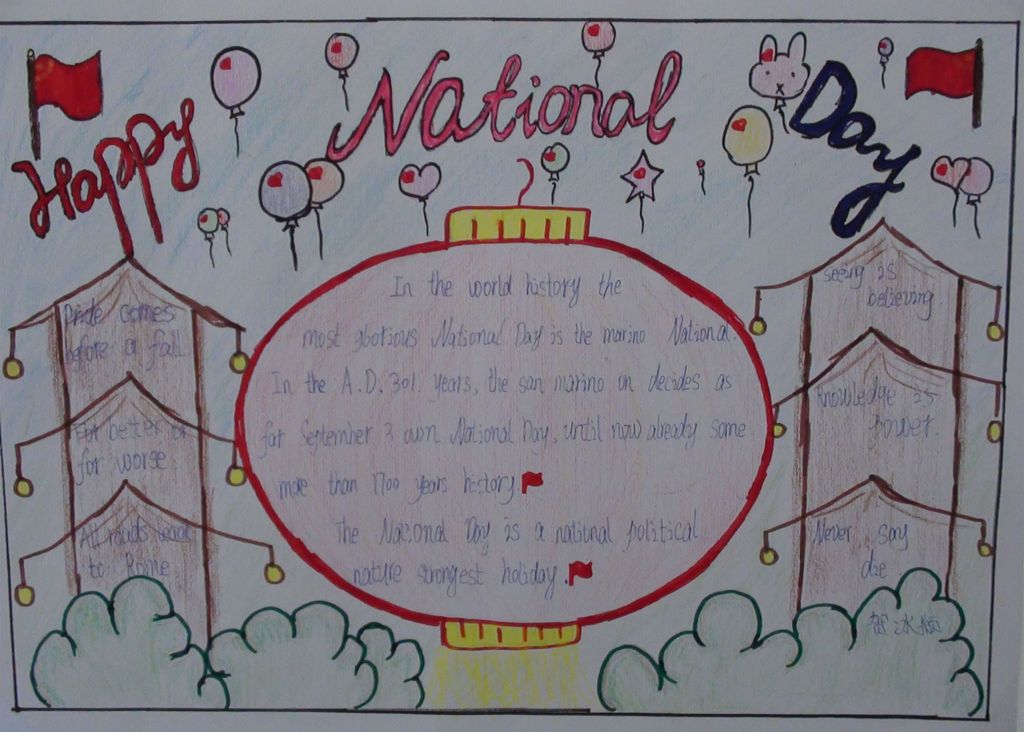 Happy National Day
In the world history the
most glorious National Day is the marino National.
In the A.D.301. years, the san marino on decides as
far September 3 own National Day, until now already some
more than 1700 years history
The National Day is a national political
nature strongest holiday.
Pride comes
before a fall..
For better or
for worse.
All roads lead
to Rome
seeing is
believing.
Knowledge is
Power.
Never say
die